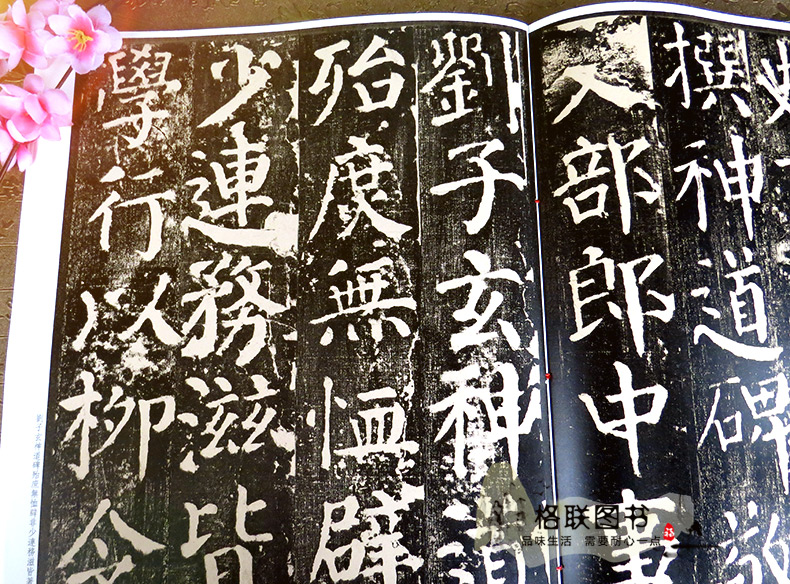 撰神道碑敬
部郎中事
劉子玄神道
殆庶無恤辟
少連務滋皆
學行以柳令
劉子玄神道碑殆庶無恤辟非少連務滋皆著
格联图书
品味生活 需要耐心一点
福